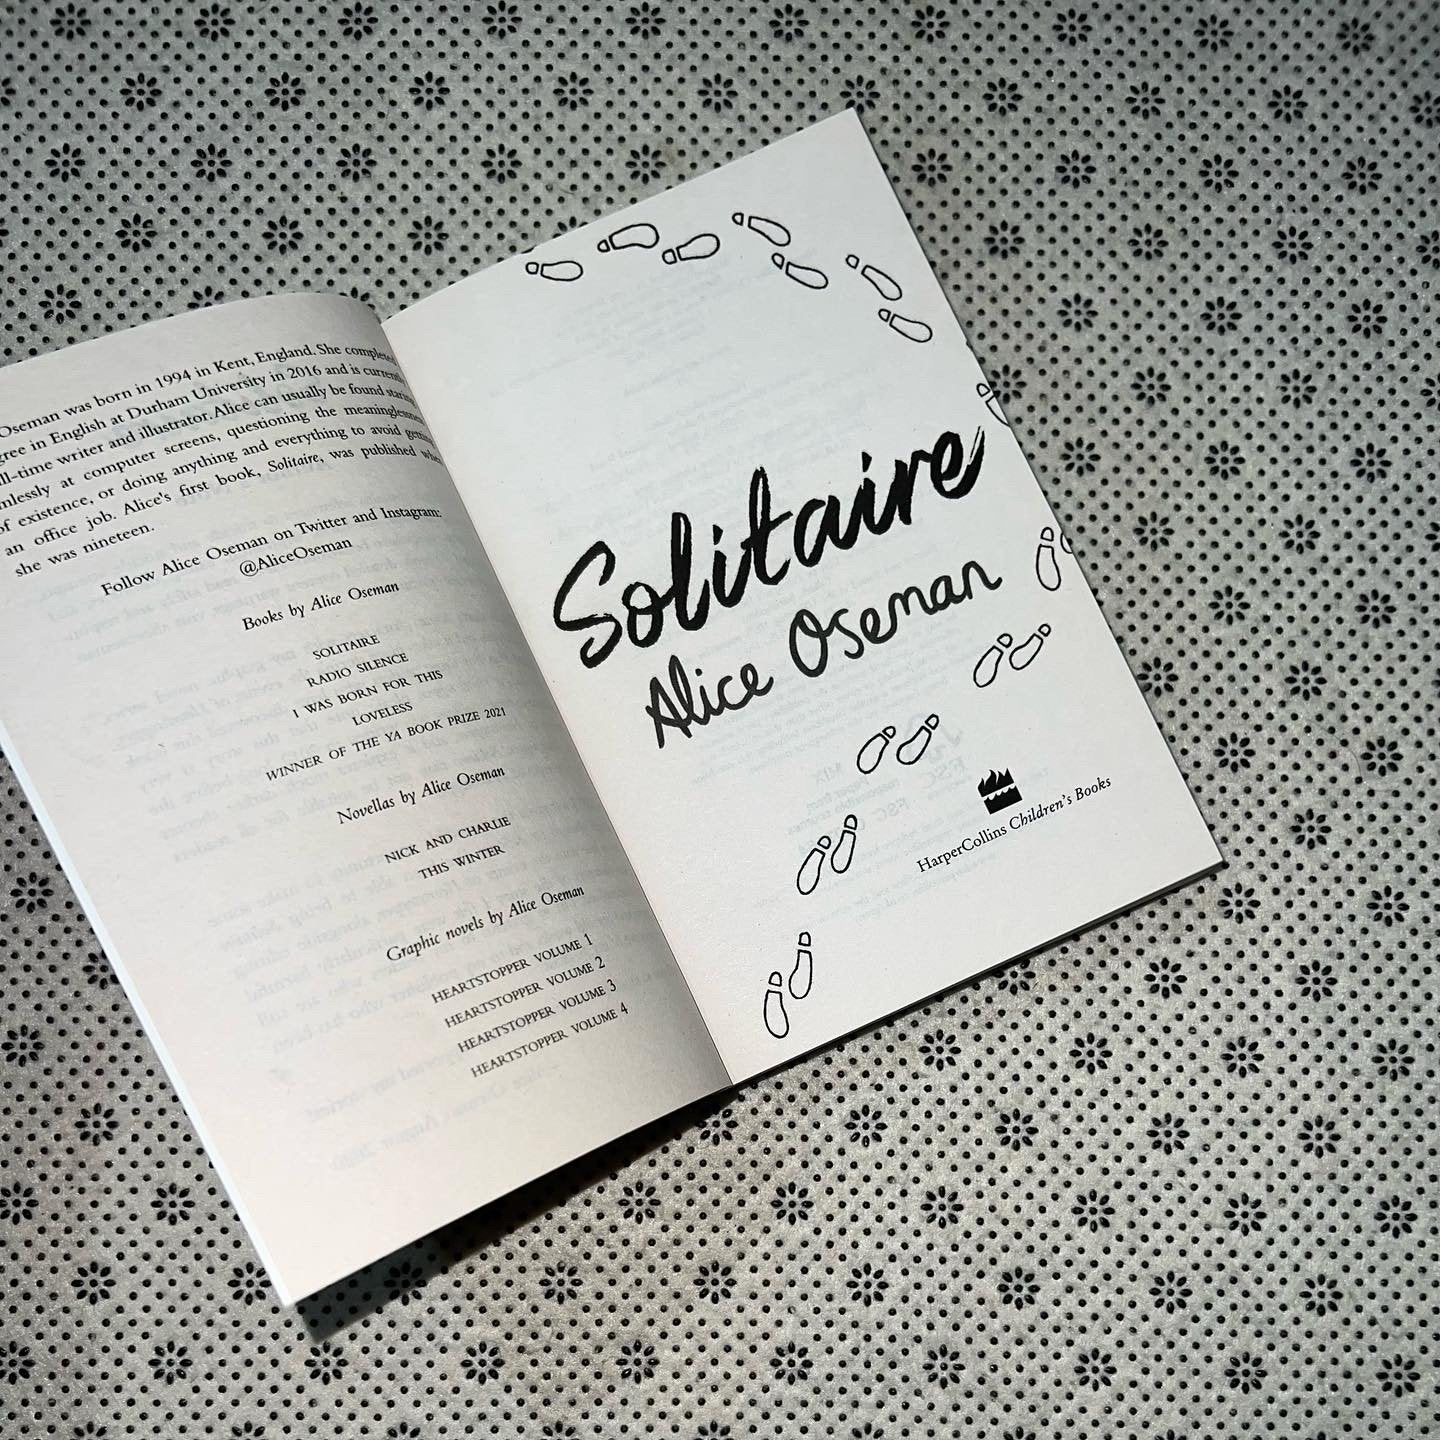 Oseman was born in 1994 in Kent, England. She completed
gree in English at Durham University in 2016 and is currently
ll-time writer and illustrator. Alice can usually be found staring
mlessly at computer screens, questioning the meaninglessness
of existence, or doing anything and everything to avoid getting
an office job. Alice's first book, Solitaire, was published when
she was nineteen.
Follow Alice Oseman on Twitter and Instagram:
@AliceOseman
Books by Alice Oseman
SOLITAIRE
RADIO SILENCE
I WAS BORN FOR THIS
LOVELESS
WINNER OF THE YA BOOK PRIZE 2021
Novellas by Alice Oseman
NICK AND CHARLIE
THIS WINTER
Graphic novels by Alice Oseman
HEARTSTOPPER VOLUME 1
HEARTSTOPPER VOLUME 2
HEARTSTOPPER VOLUME 3
HEARTSTOPPER VOLUME 4
Solitaire
Alice Oseman
HarperCollins Children's Books